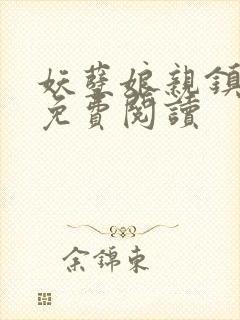 妖孽娘親鎮
免費閱讀
余錦東